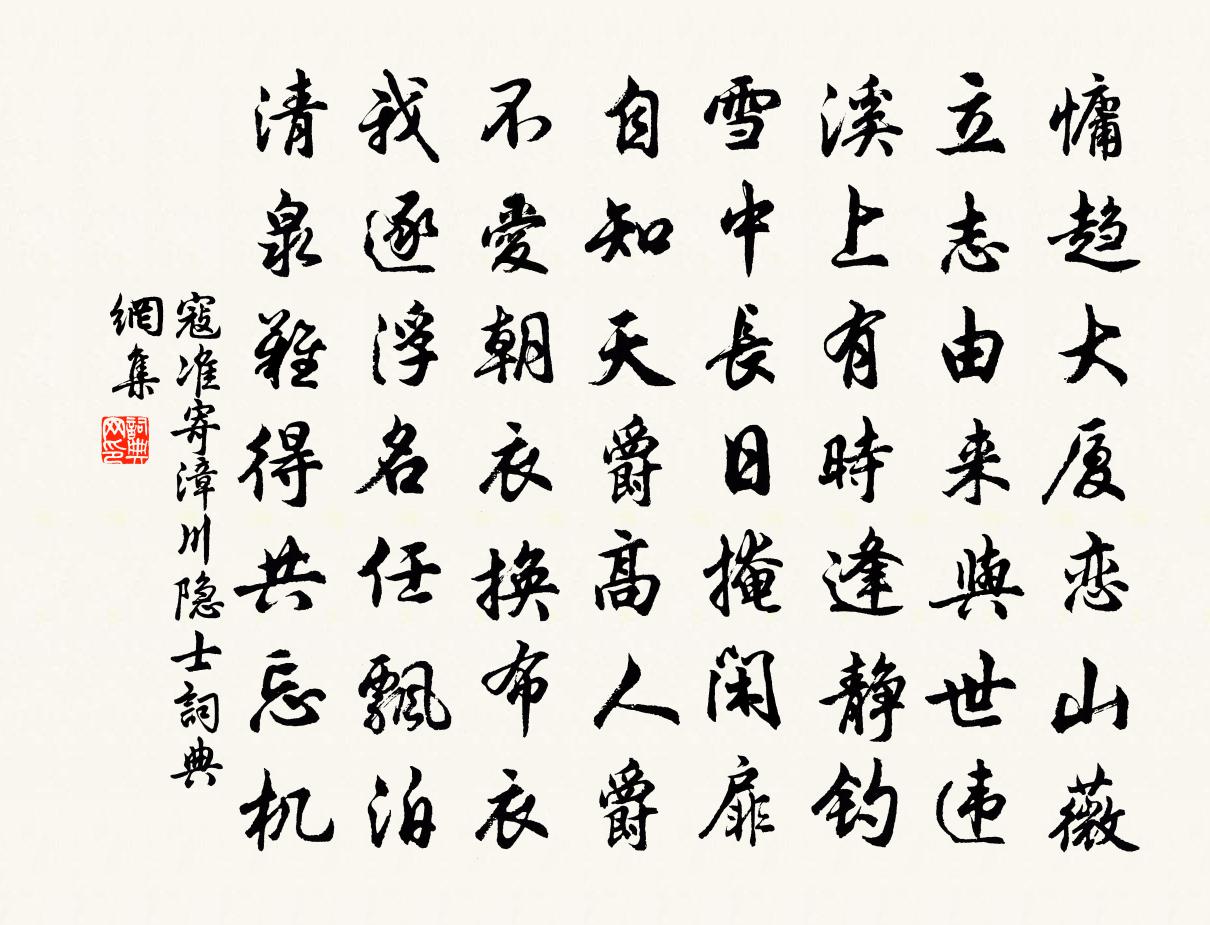 慵趋大厦恋山薇
立志由来與世违
溪上有時逢静钓
雪中長日掩閑扉
自知天爵高人爵
不愛朝衣換布衣
我逐浮名任飄泊
清泉難得共忘机
寇准寄漳川隐士詞典
網集
詞典
网印